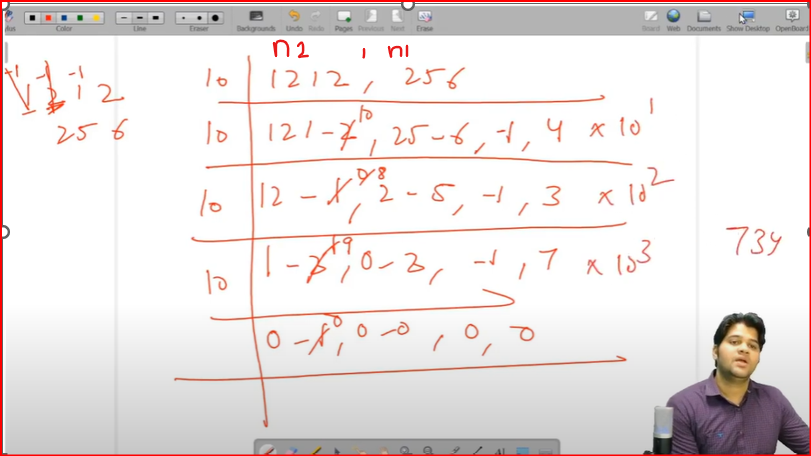 Color
Line
Eraser
Backgrounds
Undo
Redo
Pages
Previous
Next
Erase
Board
Web
Documents
Show Desktop
OpenBoard
n2 , n1
+1 -1 -1
1 2 1 2
256
10 1212, 256
10 121-2 10, 25-6, -1, 4 × 10^1
10 12-1 8, 2-5, -1, 3 × 10^2
10 1-2 9, 0-2, -1, 7 × 10^3
0-1 0, 0-0, 0, 0
734